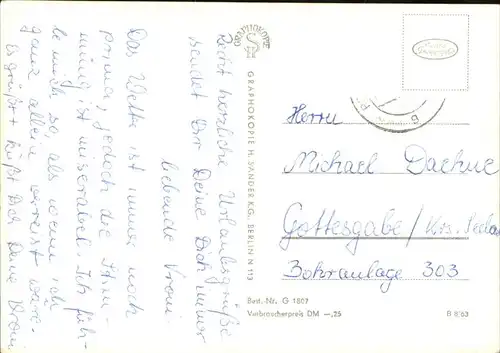 Recht herzliche Urlaubsgrüße
sendet Dir Deine Dich immer
liebende Vroni
Das Wetter ist immer noch
prima, jedoch die Stim-
mung ist miserabel. Ich füh-
le mich so, als wenn ich
ganz allein verreist wäre.
Es grüßt + küßt Dich Deine Vroni
GRAPHOKOPIE
GRAPHOKOPIE H. SANDER K.G. BERLIN N 113
Herrn
Michael Daehne
Gottesgabe/Krs. Seelow
Bohranlage 303
Best.-Nr. G 1807
Verbraucherpreis DM —,25
B 8/63